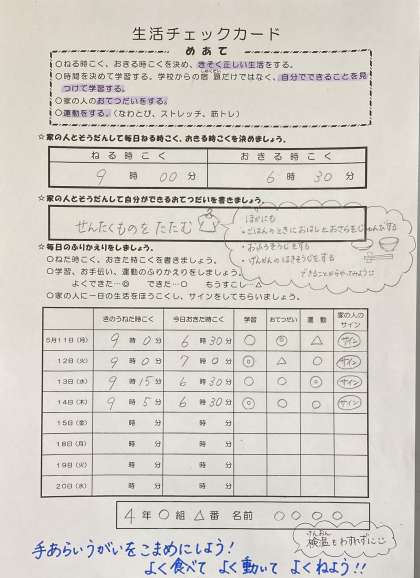 生活チェックカード
めあて
○ねる時こく、おきる時こくを決め、きそく正しい生活をする。
○時間を決めて学習する。学校からの宿題だけではなく、自分でできることを見
つけて学習する。
○家の人のおてつだいをする。
○運動をする。(なわとび、ストレッチ、筋トレ)
☆家の人とそうだんして毎日ねる時こく、おきる時こくを決めましょう。
ねる時こく おきる時こく
9時00分 6時30分
☆家の人とそうだんして自分ができるおてつだいを書きましょう。
せんたくものをたたむ
ほかにも
・ごはんのときにおはしとおさらをじゅんびする
・おふろそうじをする
・げんかんのはきそうじをする
できることからやってみよう
☆毎日のふりかえりをしましょう。
○ねた時こく、おきた時こくを書きましょう。
○学習、お手伝い、運動のふりかえりをしましょう。
よくできた…◎ できた…○ もうすこし…△
○家の人に一日の生活をほうこくし、サインをしてもらいましょう。
きのうねた時こく 今日おきた時こく 学習 おてつだい 運動 家の人のサイン
5月11日(月) 9時0分 6時30分 ○ ◎ △ サイン
12日(火) 9時0分 7時0分 ◎ △ ○ サイン
13日(水) 9時15分 6時30分 ○ ○ ◎ サイン
14日(木) 9時5分 6時30分 ◎ ○ ○ サイン
15日(金) 時 分 時 分
18日(月) 時 分 時 分
19日(火) 時 分 時 分
20日(水) 時 分 時 分
4年○組△番 名前 ○○○○
けんおん
検温もわすれずに
手あらいうがいをこまめにしよう!
よく食べて よく動いて よくねよう!!